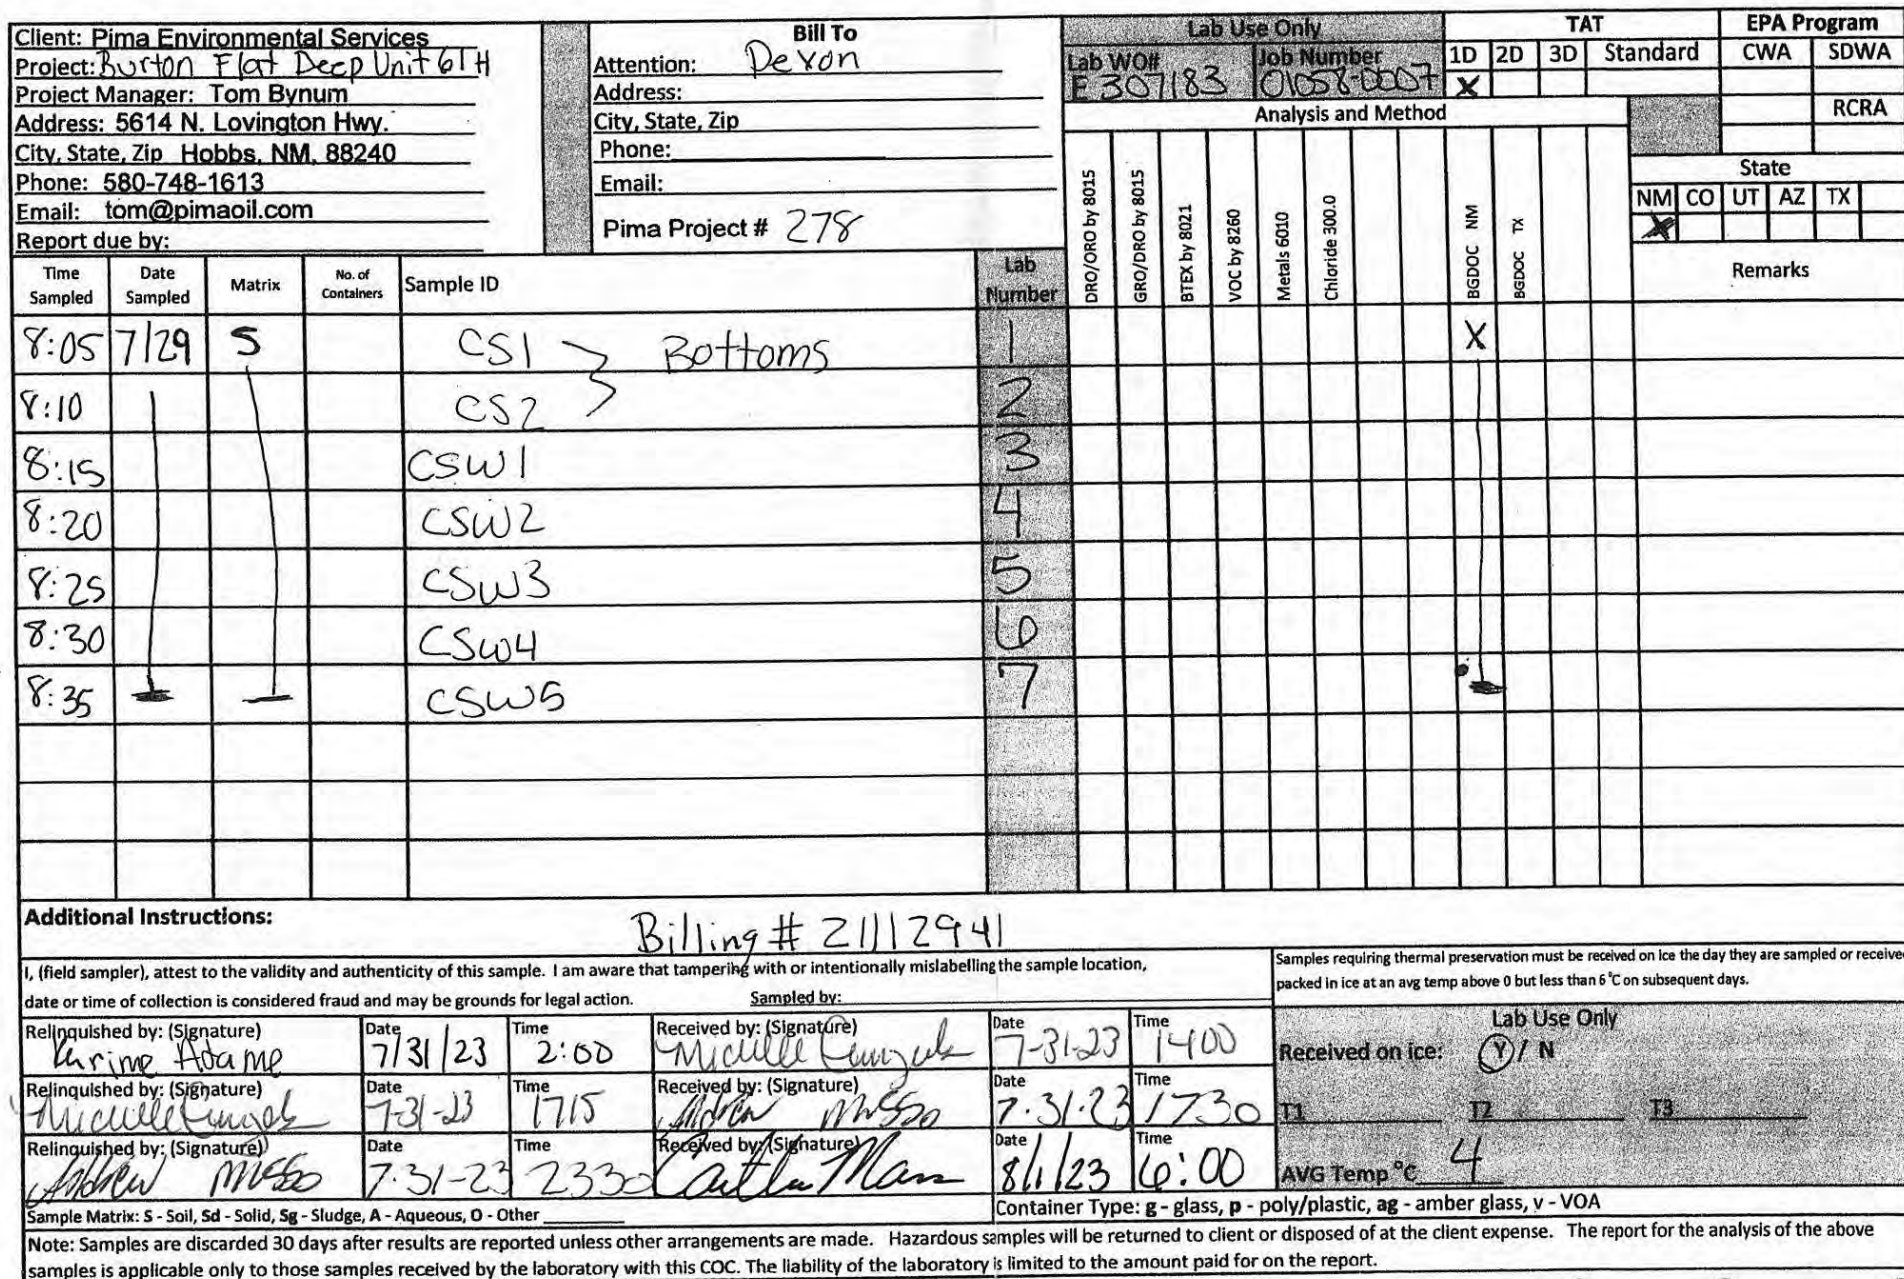 Client: Pima Environmental Services
Project: Burton Flat Deep Unit 61H
Project Manager: Tom Bynum
Address: 5614 N. Lovington Hwy.
City, State, Zip Hobbs, NM, 88240
Phone: 580-748-1613
Email: tom@pimaoil.com
Report due by:
Bill To
Attention: Devon
Address:
City, State, Zip
Phone:
Email:
Pima Project # 278
Lab Use Only
Lab WO# Job Number
E307183 01058-0007
TAT
1D 2D 3D Standard
X
EPA Program
CWA SDWA
RCRA
Analysis and Method
State
NM CO UT AZ TX
X
Time Sampled Date Sampled Matrix No. of Containers Sample ID Lab Number DRO/ORO by 8015 GRO/DRO by 8015 BTEX by 8021 VOC by 8260 Metals 6010 Chloride 300.0 BGDOC NM BGDOC TX Remarks
8:05 7/29 S CS1 Bottoms 1 X
8:10 CS2 2
8:15 CSW1 3
8:20 CSW2 4
8:25 CSW3 5
8:30 CSW4 6
8:35 CSW5 7
Additional Instructions: Billing # 21112941
I, (field sampler), attest to the validity and authenticity of this sample. I am aware that tampering with or intentionally mislabelling the sample location,
date or time of collection is considered fraud and may be grounds for legal action. Sampled by:
Samples requiring thermal preservation must be received on ice the day they are sampled or received
packed in ice at an avg temp above 0 but less than 6 °C on subsequent days.
Relinquished by: (Signature) Date Time Received by: (Signature) Date Time
Karime Adame 7/31/23 2:00 Michelle 7-31-23 1400
Relinquished by: (Signature) Date Time Received by: (Signature) Date Time
Michelle 7-31-23 1715 Andrew Musso 7.31.23 1730
Relinquished by: (Signature) Date Time Received by: (Signature) Date Time
Andrew Musso 7.31-23 2330 Caitlin 8/1/23 6:00
Lab Use Only
Received on ice: Y / N
T1 T2 T3
AVG Temp °C 4
Sample Matrix: S - Soil, Sd - Solid, Sg - Sludge, A - Aqueous, O - Other
Container Type: g - glass, p - poly/plastic, ag - amber glass, v - VOA
Note: Samples are discarded 30 days after results are reported unless other arrangements are made. Hazardous samples will be returned to client or disposed of at the client expense. The report for the analysis of the above
samples is applicable only to those samples received by the laboratory with this COC. The liability of the laboratory is limited to the amount paid for on the report.